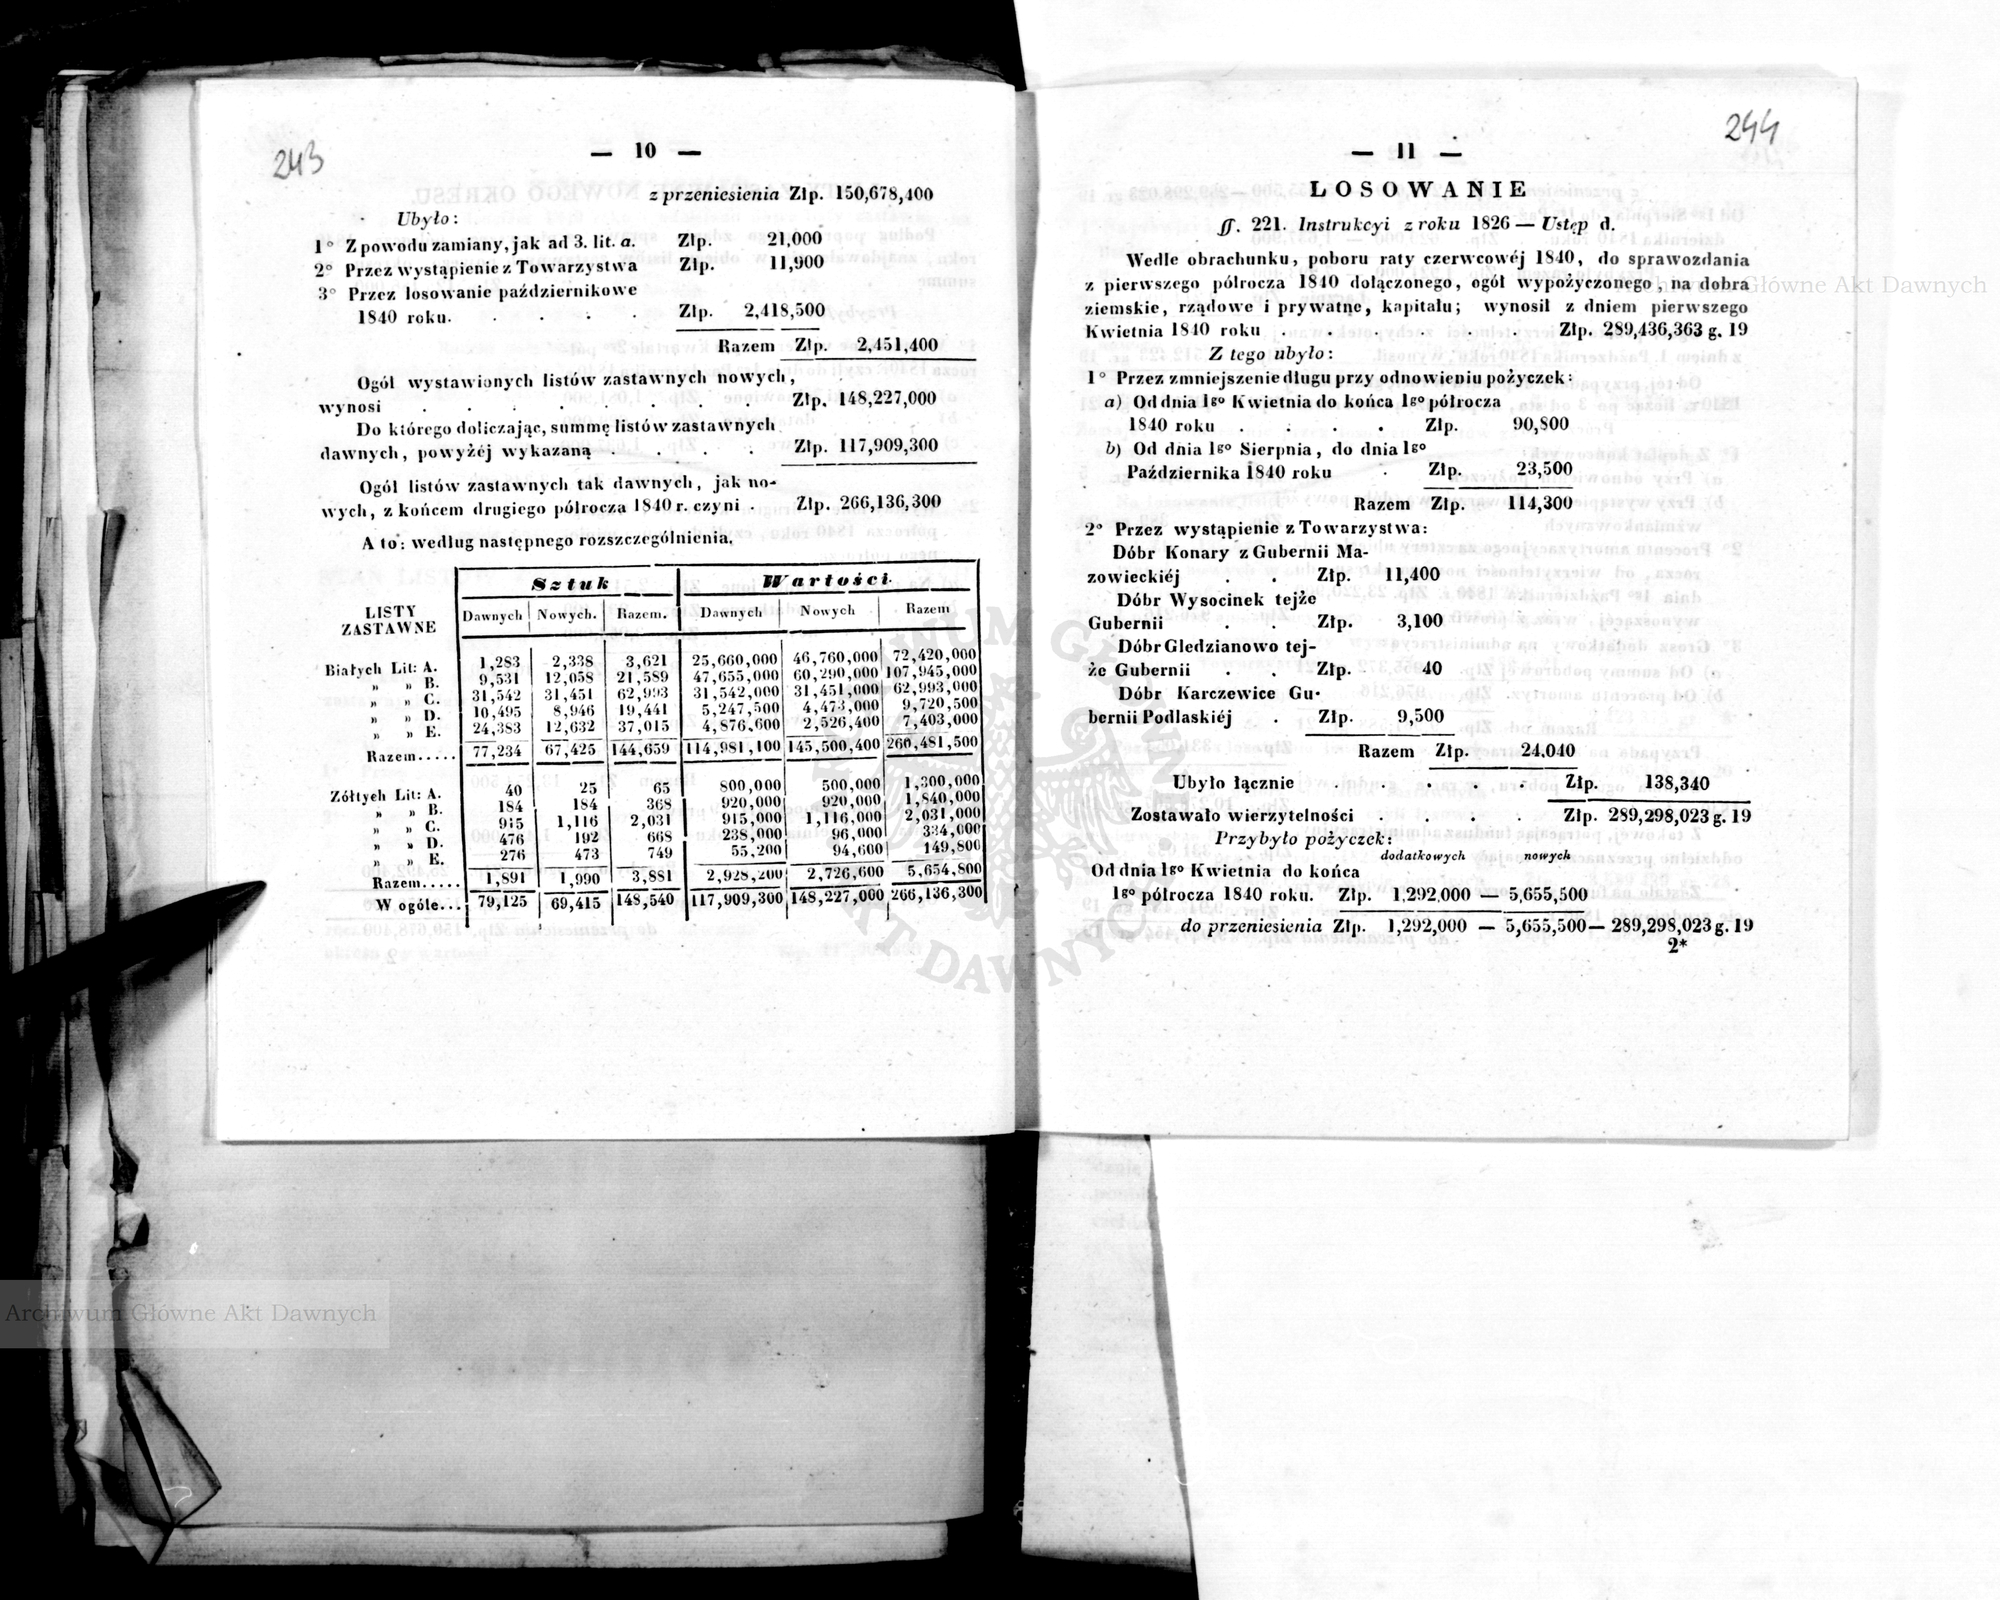 243
— 10 —
z przeniesienia Złp. 150,678,400
Ubyło:
1° Z powodu zamiany, jak ad 3. lit. a. Złp. 21,000
2° Przez wystąpienie z Towarzystwa Złp. 11,900
3° Przez losowanie październikowe
1840 roku. . . . . Złp. 2,418,500
Razem Złp. 2,451,400
Ogół wystawionych listów zastawnych nowych,
wynosi . . . . . . . Złp. 148,227,000
Do którego doliczając, summę listów zastawnych
dawnych, powyżéj wykazaną . . . . Złp. 117,909,300
Ogół listów zastawnych tak dawnych, jak no-
wych, z końcem drugiego półrocza 1840 r. czyni . Złp. 266,136,300
A to: według następnego rozszczególnienia.
LISTY ZASTAWNE Sztuk Wartości
Dawnych Nowych. Razem. Dawnych Nowych Razem
Białych Lit: A. 1,283 2,338 3,621 25,660,000 46,760,000 72,420,000
„ „ B. 9,531 12,058 21,589 47,655,000 60,290,000 107,945,000
„ „ C. 31,542 31,451 62,993 31,542,000 31,451,000 62,993,000
„ „ D. 10,495 8,946 19,441 5,247,500 4,473,000 9,720,500
„ „ E. 24,383 12,632 37,015 4,876,600 2,526,400 7,403,000
Razem..... 77,234 67,425 144,659 114,981,100 145,500,400 260,481,500
Żółtych Lit: A. 40 25 65 800,000 500,000 1,300,000
„ „ B. 184 184 368 920,000 920,000 1,840,000
„ „ C. 915 1,116 2,031 915,000 1,116,000 2,031,000
„ „ D. 476 192 668 238,000 96,000 334,000
„ „ E. 276 473 749 55,200 94,600 149,800
Razem..... 1,891 1,990 3,881 2,928,200 2,726,600 5,654,800
W ogóle... 79,125 69,415 148,540 117,909,300 148,227,000 266,136,300
244
— 11 —
LOSOWANIE
§. 221. Instrukcyi z roku 1826 — Ustęp d.
Wedle obrachunku, poboru raty czerwcowéj 1840, do sprawozdania
z pierwszego półrocza 1840 dołączonego, ogół wypożyczonego, na dobra
ziemskie, rządowe i prywatne, kapitału; wynosił z dniem pierwszego
Kwietnia 1840 roku . . . . . . . Złp. 289,436,363 g. 19
Z tego ubyło:
1° Przez zmniejszenie długu przy odnowieniu pożyczek:
a) Od dnia 1go Kwietnia do końca 1go półrocza
1840 roku . . . . Złp. 90,800
b) Od dnia 1go Sierpnia, do dnia 1go
Października 1840 roku . Złp. 23,500
Razem Złp. 114,300
2° Przez wystąpienie z Towarzystwa:
Dóbr Konary z Gubernii Ma-
zowieckiéj . . Złp. 11,400
Dóbr Wysocinek tejże
Gubernii . . Złp. 3,100
Dóbr Gledzianowo tej-
że Gubernii . . Złp. 40
Dóbr Karczewice Gu-
bernii Podlaskiéj . Złp. 9,500
Razem Złp. 24,040
Ubyło łącznie . . . . . Złp. 138,340
Zostawało wierzytelności . . . . Złp. 289,298,023 g. 19
Przybyło pożyczek:
dodatkowych nowych
Od dnia 1go Kwietnia do końca
1go półrocza 1840 roku. Złp. 1,292,000 — 5,655,500
do przeniesienia Złp. 1,292,000 — 5,655,500 — 289,298,023 g. 19
2*
Archiwum Główne Akt Dawnych
Archiwum Główne Akt Dawnych